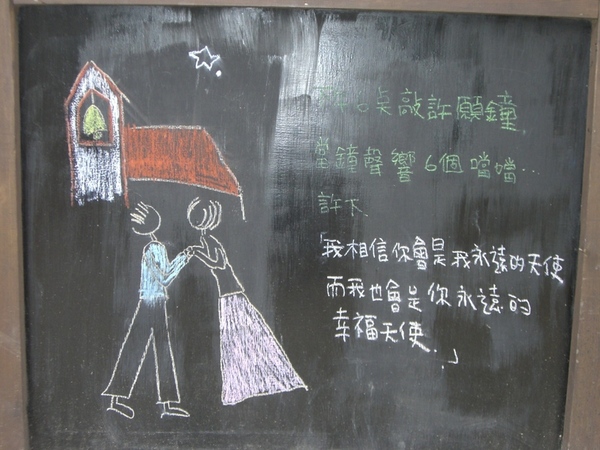 點敲許願鐘,
當鐘聲響6個噹噹…
許下
「我相信你會是我永遠的天使
而我也會是你永遠的
幸福天使..」